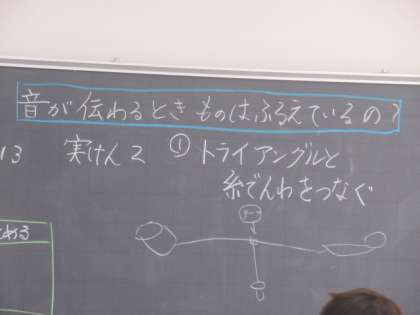 音が伝わるとき ものはふるえているの?
13
実けん2 ①トライアングルと
糸でんわをつなぐ
める